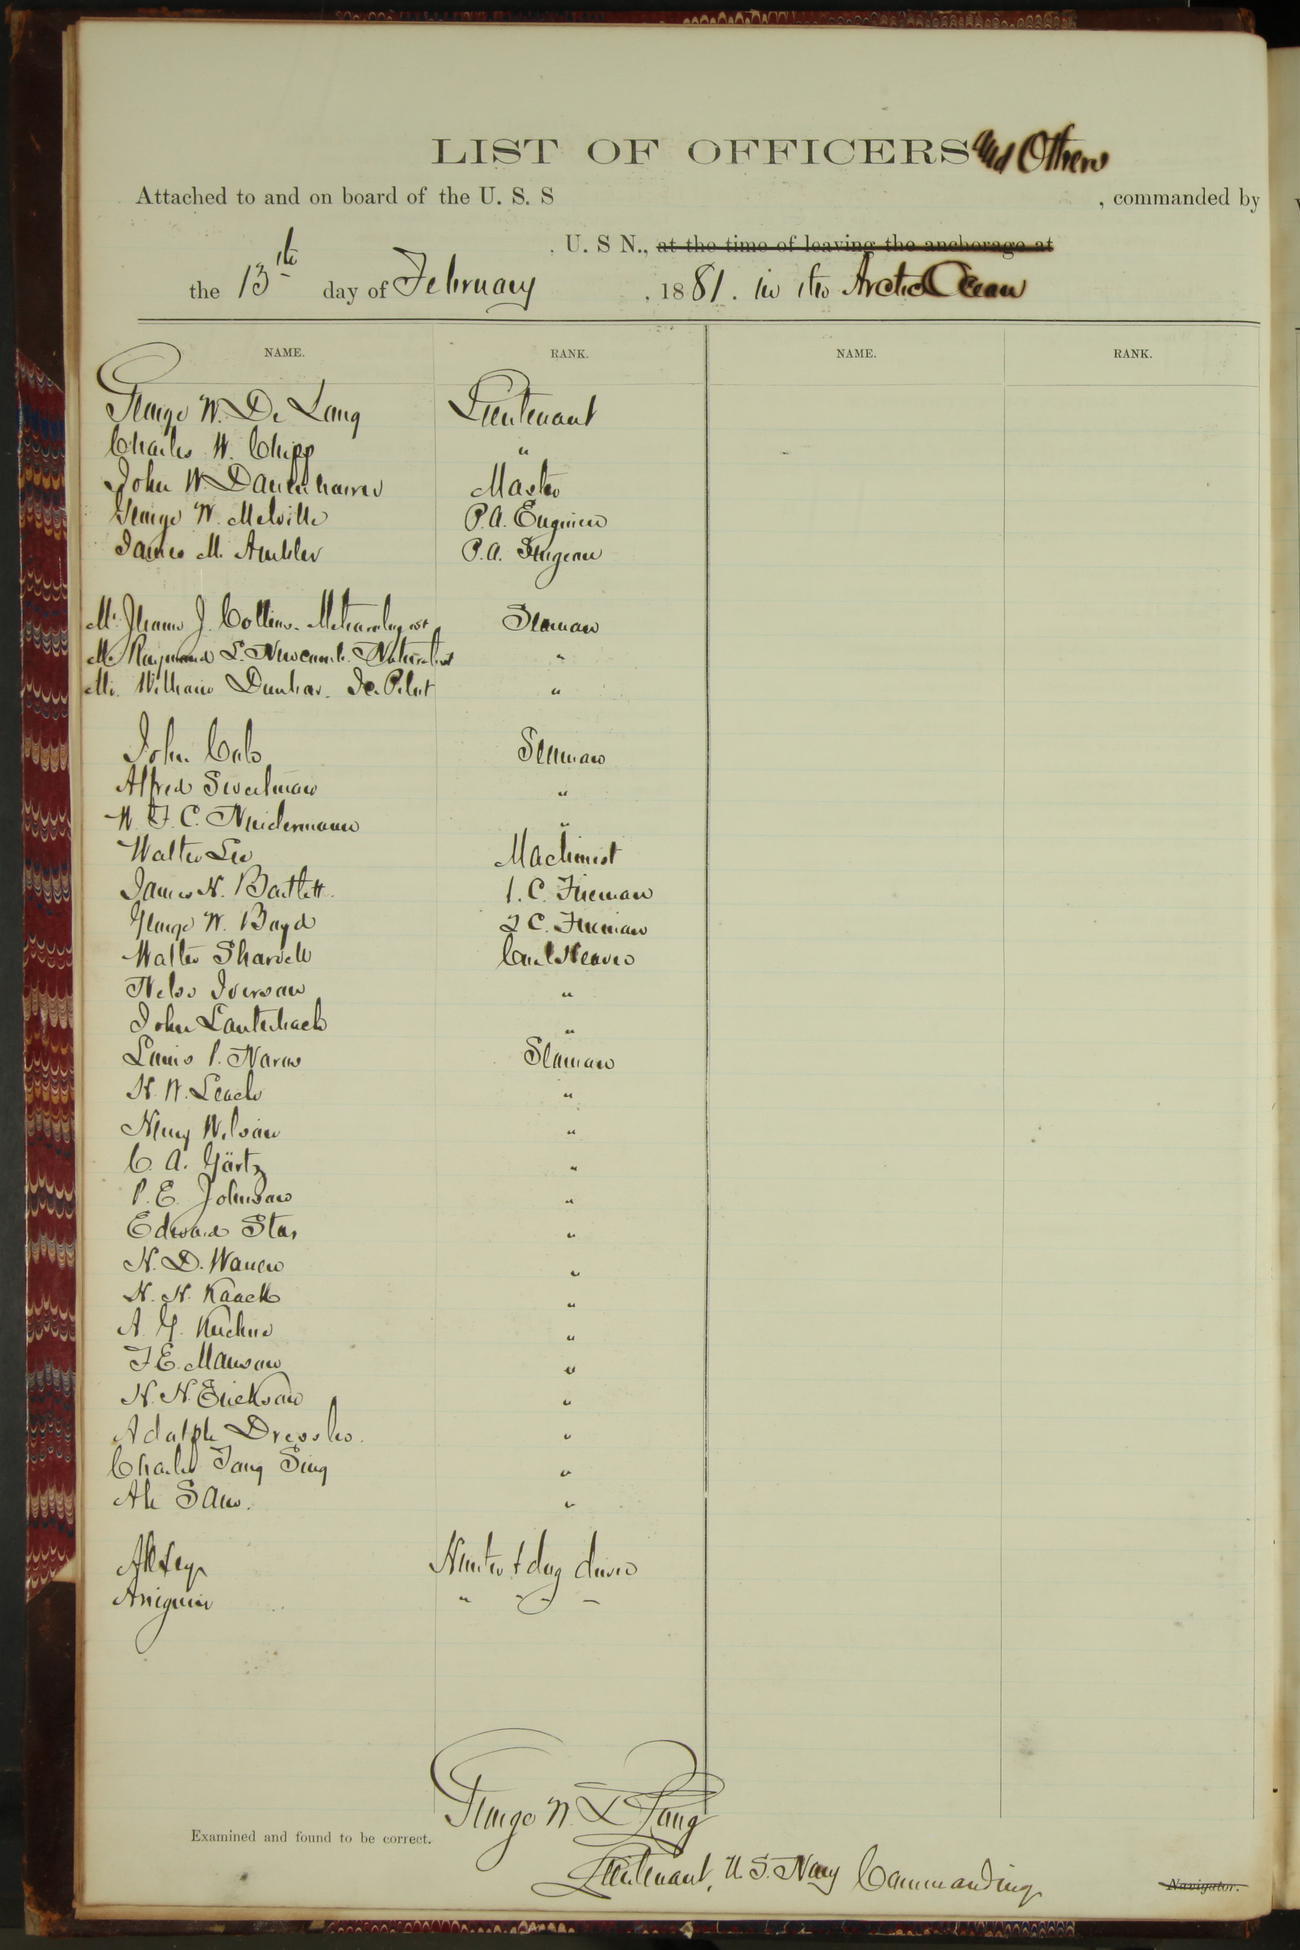 LIST OF OFFICERS and Others
Attached to and on board of the U. S. S , commanded by
, U. S N., at the time of leaving the anchorage at
the 13th day of February , 1881. in the Arctic Ocean
NAME. RANK. NAME. RANK.
George W. De Long Lieutenant
Charles W. Chipp "
John W. Danenhower Master
George W. Melville P.A. Engineer
James M. Ambler P.A. Surgeon
Mr. Jerome J. Collins. Meteorologist Seaman
Mr. Raymond L. Newcomb. Naturalist "
Mr. William Dunbar. Ice Pilot "
John Cole Seaman
Alfred Sweetman "
W. F. C. Nindermann "
Walter Lee Machinist
James H. Bartlett. 1. C. Fireman
George W. Boyd 2 C. Fireman
Walter Sharvell Coal Heaver
Nelse Iverson "
John Lauterbach "
Louis P. Noros Seaman
H. W. Leach "
Henry Wilson "
C. A. Görtz "
P. E. Johnson "
Edward Star "
H. D. Warren "
H. H. Kaack "
A. G. Kuehne "
F. E. Manson "
H. H. Erickson "
Adolph Dressler. "
Charles Tong Sing "
Ah Sam. "
Alexey Hunter & dog driver
Aneguin " " "
George W. De Long
Examined and found to be correct.
Lieutenant, U.S. Navy Commanding
Navigator.